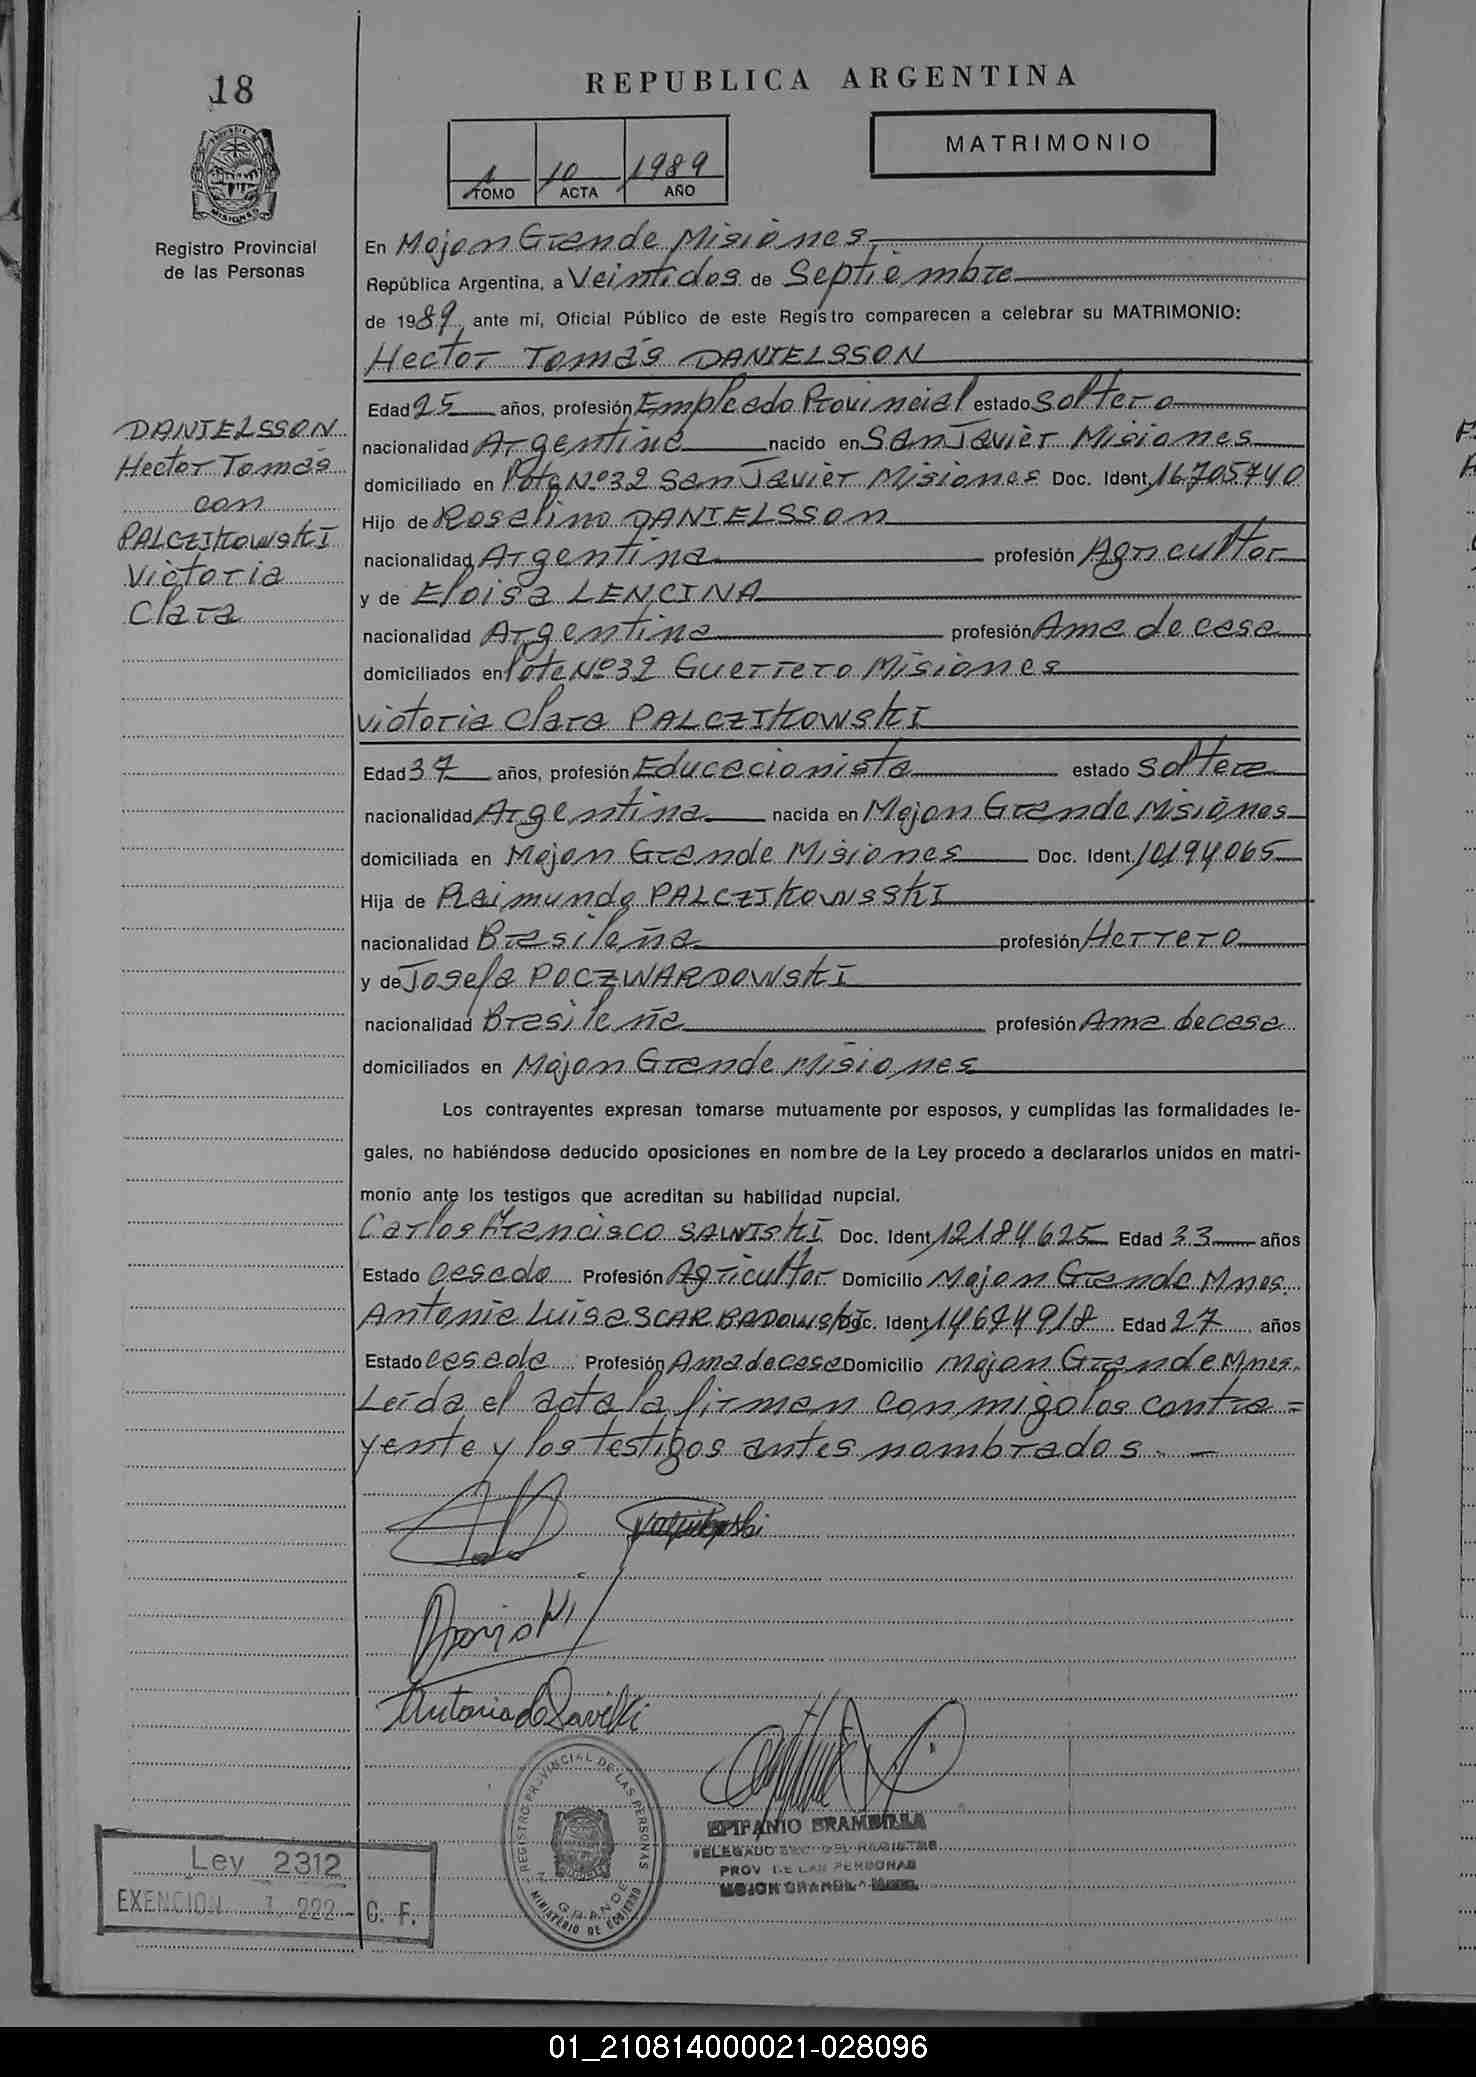 18
REPUBLICA ARGENTINA
MATRIMONIO
1 10 1989
TOMO ACTA AÑO
PROVINCIA DE
MISIONES
Registro Provincial
de las Personas
En Mojon Grande Misiones
República Argentina, a Veintidos de Septiembre
de 1989, ante mí, Oficial Público de este Registro comparecen a celebrar su MATRIMONIO:
Hector Tomás DANIELSSON
Edad 25 años, profesión Empleado Provincial estado soltero
DANIELSSON
Hector Tomás
con
PALCZIKOWSKI
Victoria
Clara
nacionalidad Argentina nacido en San Javier Misiones
domiciliado en Pote Nº32 San Javier Misiones Doc. Ident. 16705740
Hijo de Roselino DANIELSSON
nacionalidad Argentina profesión Agricultor
y de Eloisa LENCINA
nacionalidad Argentina profesión Ama de casa
domiciliados en Pote Nº32 Guerrero Misiones
Victoria Clara PALCZIKOWSKI
Edad 37 años, profesión Educacionista estado soltera
nacionalidad Argentina nacida en Mojon Grande Misiones
domiciliada en Mojon Grande Misiones Doc. Ident. 10194065
Hija de Raimundo PALCZIKOWSSKI
nacionalidad Brasileña profesión Herrero
y de Josefa POCZWARDOWSKI
nacionalidad Brasileña profesión Ama de casa
domiciliados en Mojon Grande Misiones
Los contrayentes expresan tomarse mutuamente por esposos, y cumplidas las formalidades le-
gales, no habiéndose deducido oposiciones en nombre de la Ley procedo a declararlos unidos en matri-
monio ante los testigos que acreditan su habilidad nupcial.
Carlos Francisco SAWISKI Doc. Ident. 12184625 Edad 33 años
Estado casado Profesión Agricultor Domicilio Mojon Grande Mnes.
Antonia Luisa SCARBADOWSKI Doc. Ident. 14674918 Edad 27 años
Estado casada Profesión Ama de casa Domicilio Mojon Grande Mnes.
Leída el acta la firman conmigo los contra=
yente y los testigos antes nombrados. -
Antonia de Savilki
REGISTRO PROVINCIAL DE LAS PERSONAS
GRANDE
MINISTERIO DE GOBIERNO
EPIFANIO BRAMBILLA
DELEGADO DEL REGISTRO
PROV DE LAS PERSONAS
MOJON GRANDE - Mnes.
Ley 2312
EXENCION 222 - C. F.
01_210814000021-028096